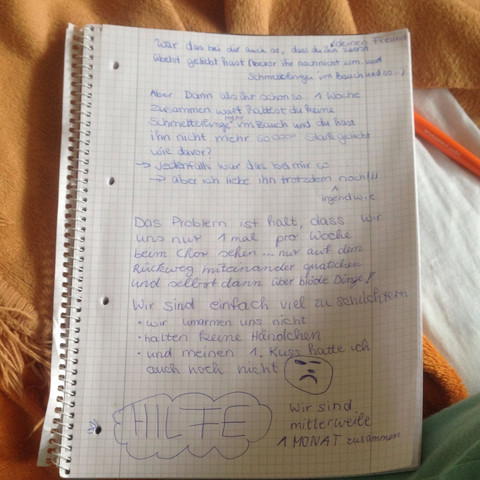 War das bei dir auch so, dass du deinen Freund
geliebt hast bevor ihr noch nicht zsm. wart
Schmetterlinge im Bauch und so...)
Aber Dann als ihr schon so 1 Woche
zusammen wart hattest du keine
Schmetterlinge mehr im Bauch und du hast
ihn nicht mehr so stark geliebt
wie davor?
→ Jedenfalls war das bei mir so
→ aber ich liebe ihn trotzdem noch!!!
irgendwie
Das Problem ist halt, dass wir
uns nur 1 mal pro Woche
beim Chor sehen ... nur auf dem
Rückweg miteinander quatschen
und selbst dann über blöde Dinge!
Wir sind einfach viel zu schüchtern
• wir umarmen uns nicht
• halten keine Händchen
• und meinen 1. Kuss hatte ich
auch noch nicht
HILFE
Wir sind
mittlerweile
1 MONAT zusammen